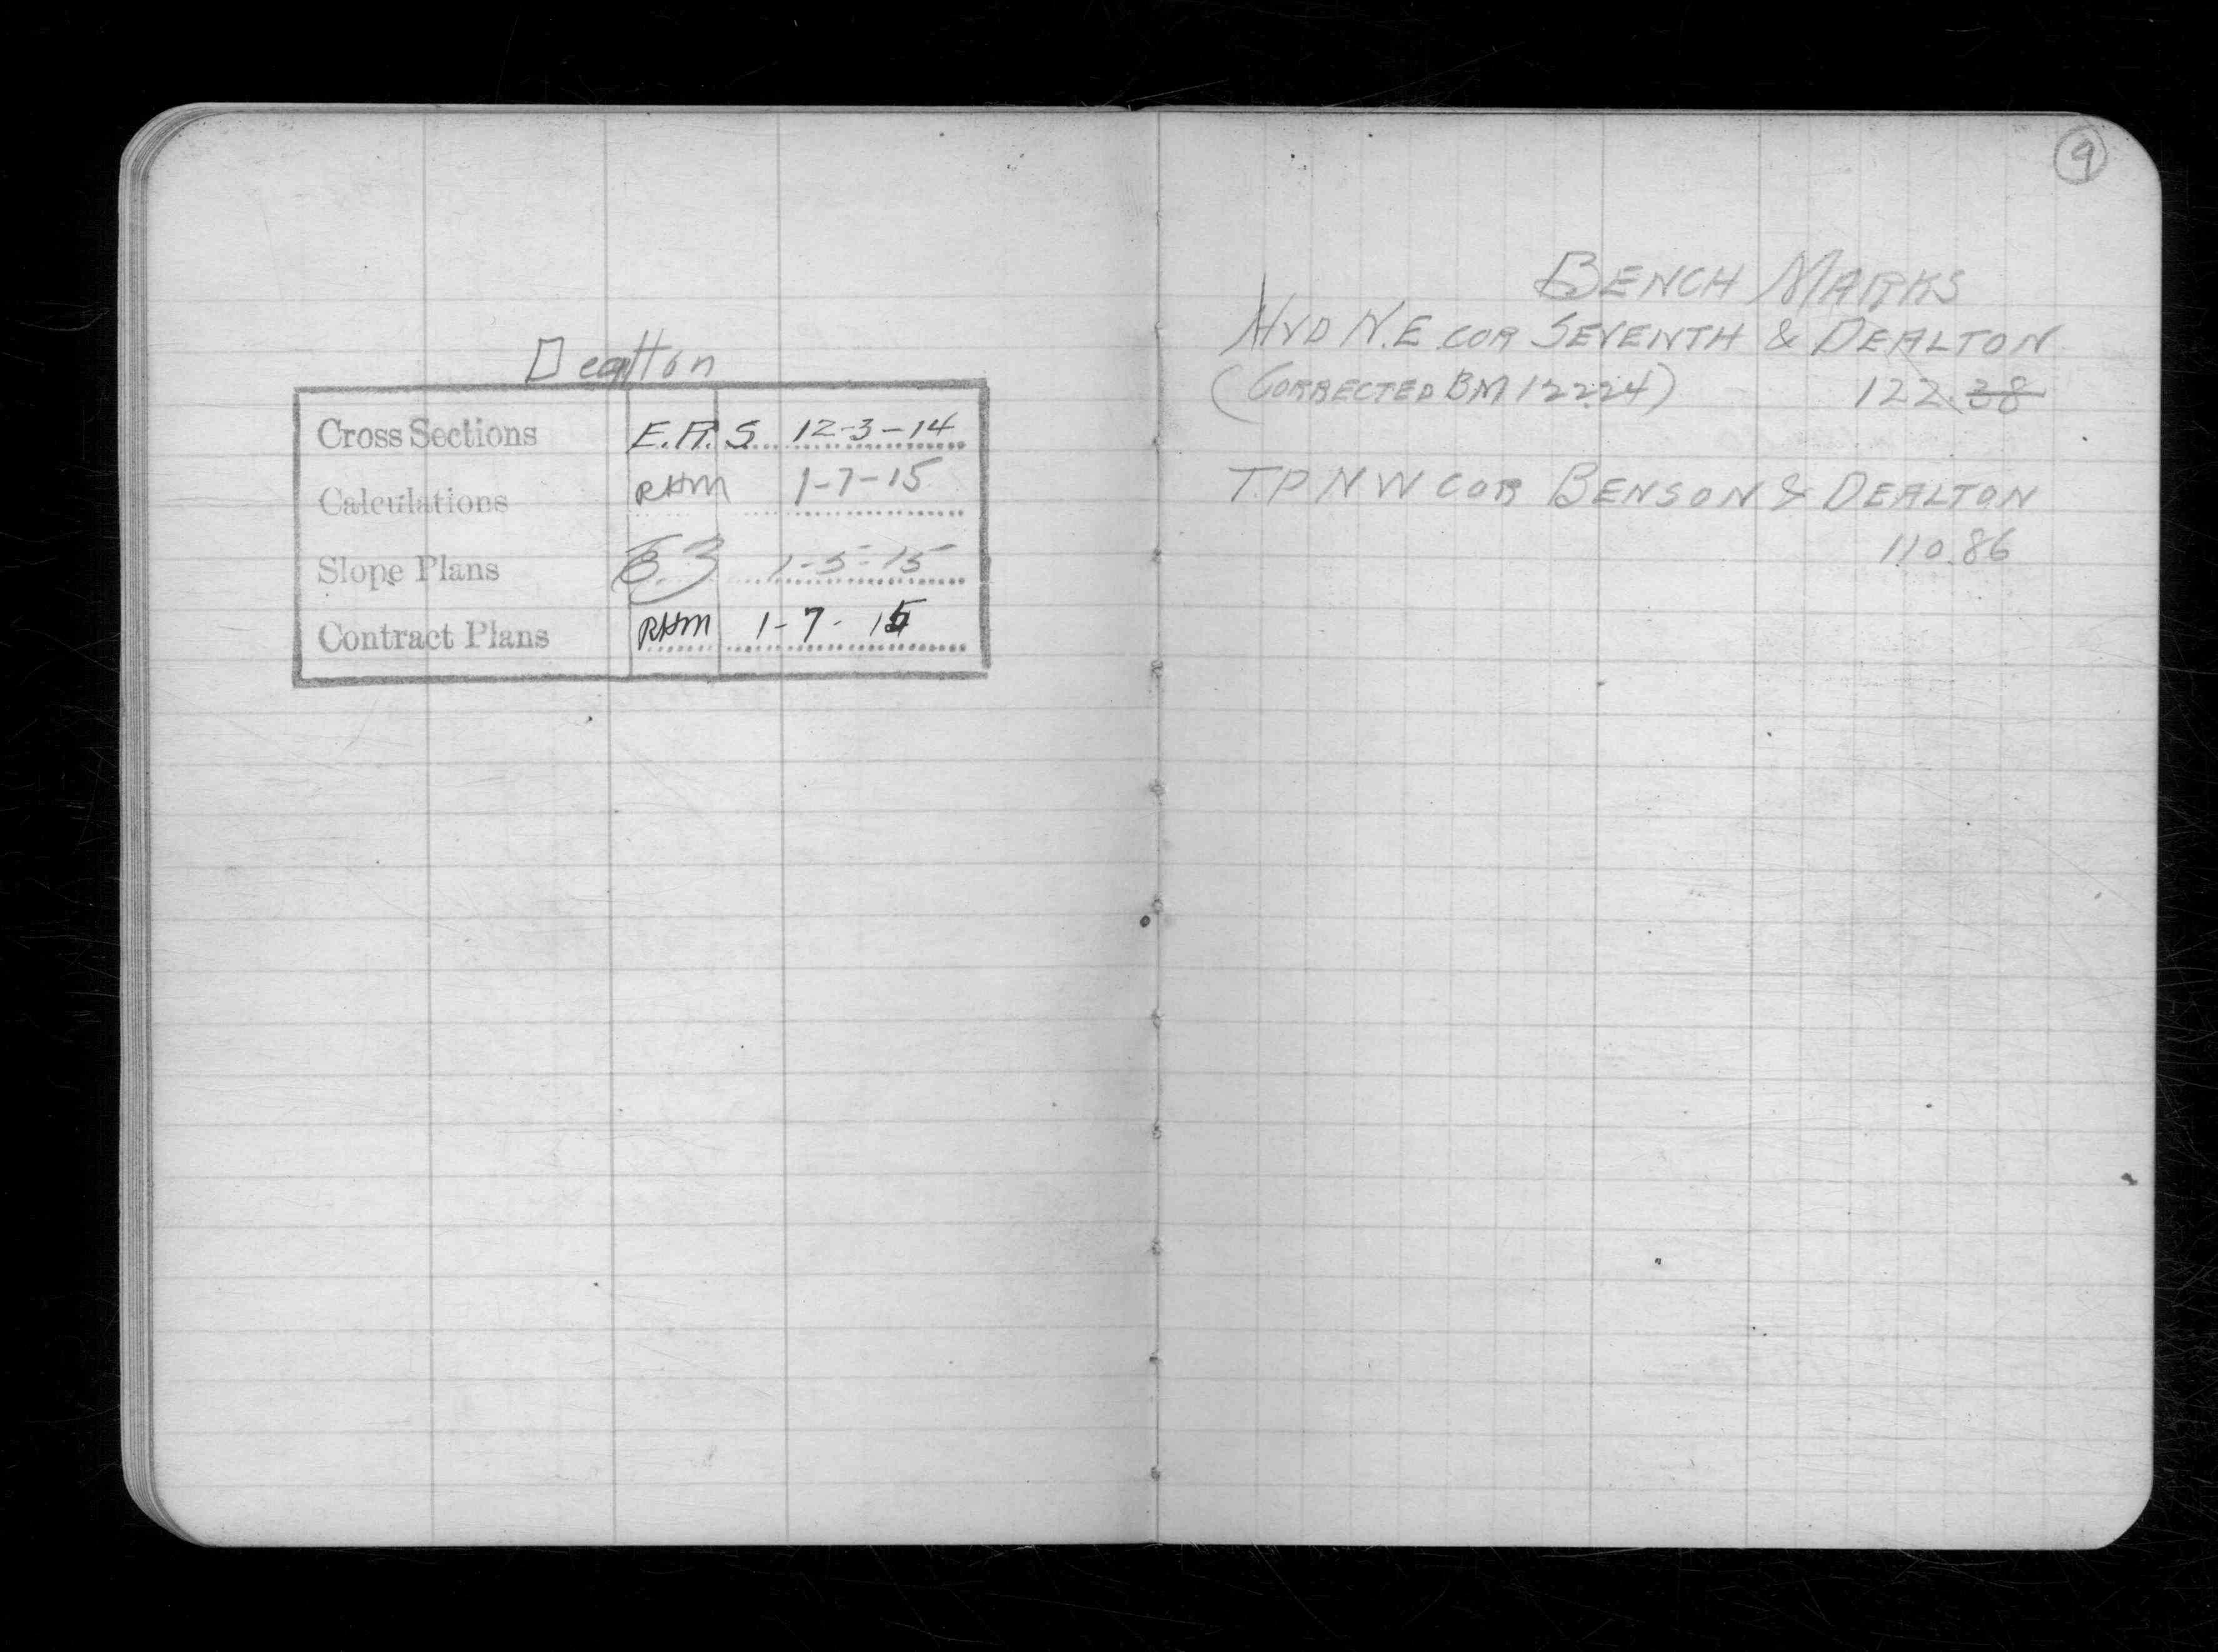 Dealton
Cross Sections E.R.S. 12-3-14
Calculations RHM 1-7-15
Slope Plans 1-5-15
Contract Plans RHM 1-7-15
9
BENCH MARKS
HYD N.E COR SEVENTH & DEALTON
(CORRECTED BM 122.24) 122.38
T.P N W COR BENSON & DEALTON
110.86